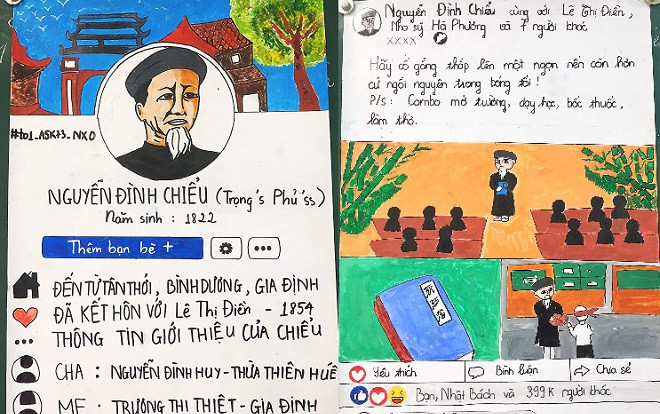 #tb1_ASK+3_NXO
NGUYỄN ĐÌNH CHIỂU (Trọng's Phủ'ss)
Năm sinh : 1822
Thêm bạn bè +
ĐẾN TỪ TÂN THỚI, BÌNH DƯƠNG, GIA ĐỊNH
ĐÃ KẾT HÔN VỚI Lê Thị Điền - 1854
THÔNG TIN GIỚI THIỆU CỦA CHIỂU
CHA : NGUYỄN ĐÌNH HUY - THỪA THIÊN HUẾ
MẸ : TRƯƠNG THỊ THIỆT - GIA ĐỊNH
Nguyễn Đình Chiểu cùng với Lê Thị Điền,
Nho sỹ Hà Phương và 7 người khác
XXXX
Hãy cố gắng thắp lên một ngọn nến còn hơn
cứ ngồi nguyền trong bóng tối !
P/s : Combo mở trường, dạy học, bốc thuốc,
làm thơ.
Yêu thích
Bình luận
Chia sẻ
Bạn, Nhật Bách và 399k người khác